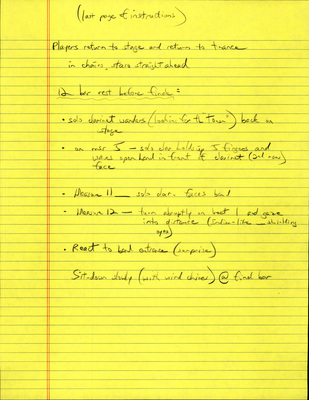 (last page of instructions)
Players return to stage and return to trance
in chairs, stare straight ahead
12 bar rest before finale:
• solo clarinet wanders (looking for the "town") back on
stage
• on msr 5 - solo clar holds up 5 fingers and
waves open hand in front of clarinet (2nd row)
face
• Measure 11 — solo clar. faces band
• Measure 12 — turn abruptly on beat 1 and gaze
into distance (Indian-like shielding
eyes)
• React to band entrance (surprise)
Sit down slowly (with wind chimes) @ final bar